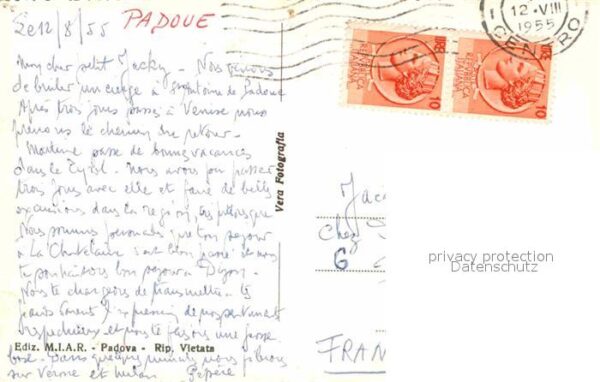 PADOUE
le 12/8/55
Mon cher petit Jacky - Nous venons
de bruler un cierge à St Antoine de Padoue
Après trois jours passés à Venise nous
prenons le chemin du retour -
Martine passe de bonnes vacances
dans le Tyrol - nous avons pu passer
trois jours avec elle et faire de belles
excursions dans la région, très pittoresque
Nous sommes persuadés que ton séjour
à La Chatelaine s'est bien passé et nous
te souhaitons bon séjour à Dijon -
Nous te chargeons de transmettre à tes
grands parents l'expression de nos sentiments
respectueux et nous te faisons une grosse
bise. Dans quelques minutes nous filerons
sur Vérone et Milan
Ediz. M.I.A.R. - Padova - Rip. Vietata
Vera Fotografia
12·VIII
1955
CENTRO
10
10
Jac
Chez
6
FRAN
privacy protection
Datenschutz